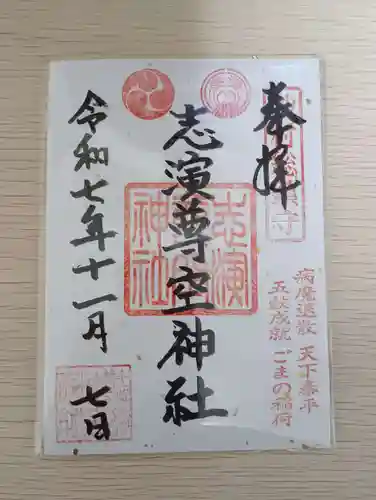 奉拝
病魔退散 天下泰平
五穀成就 ごまの稲荷
志演尊空神社
志演
神社
令和七年十一月
七日